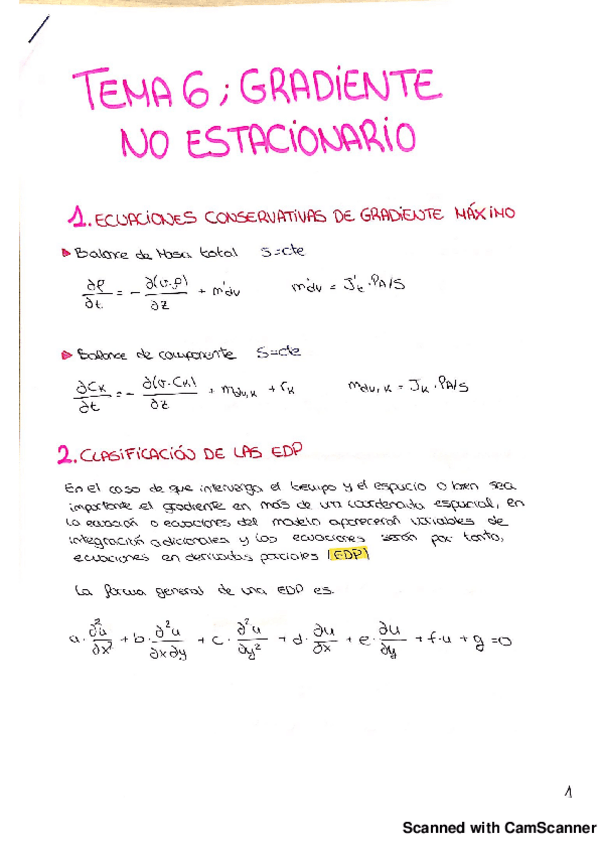 TEMA 6; GRADIENTE
NO ESTACIONARIO
1. ECUACIONES CONSERVATIVAS DE GRADIENTE MÁXIMO
▶ Balance de Masa total S=cte
∂ρ/∂t = - ∂(v·ρ)/∂z + m'dv m'dv = J't·PA/S
▶ Balance de componente S=cte
∂Ck/∂t = - ∂(v·Ck)/∂z + mdv,k + rk mdv,k = Jk·PA/S
2. CLASIFICACIÓN DE LAS EDP
En el caso de que intervenga el tiempo y el espacio o bien sea
importante el gradiente en más de una coordenada espacial, en
la ecuación o ecuaciones del modelo aparecerán variables de
integración adicionales y las ecuaciones serán por tanto,
ecuaciones en derivadas parciales (EDP)
La forma general de una EDP es:
a·∂²u/∂x² + b·∂²u/∂x∂y + c·∂²u/∂y² + d·∂u/∂x + e·∂u/∂y + f·u + g = 0
1
Scanned with CamScanner